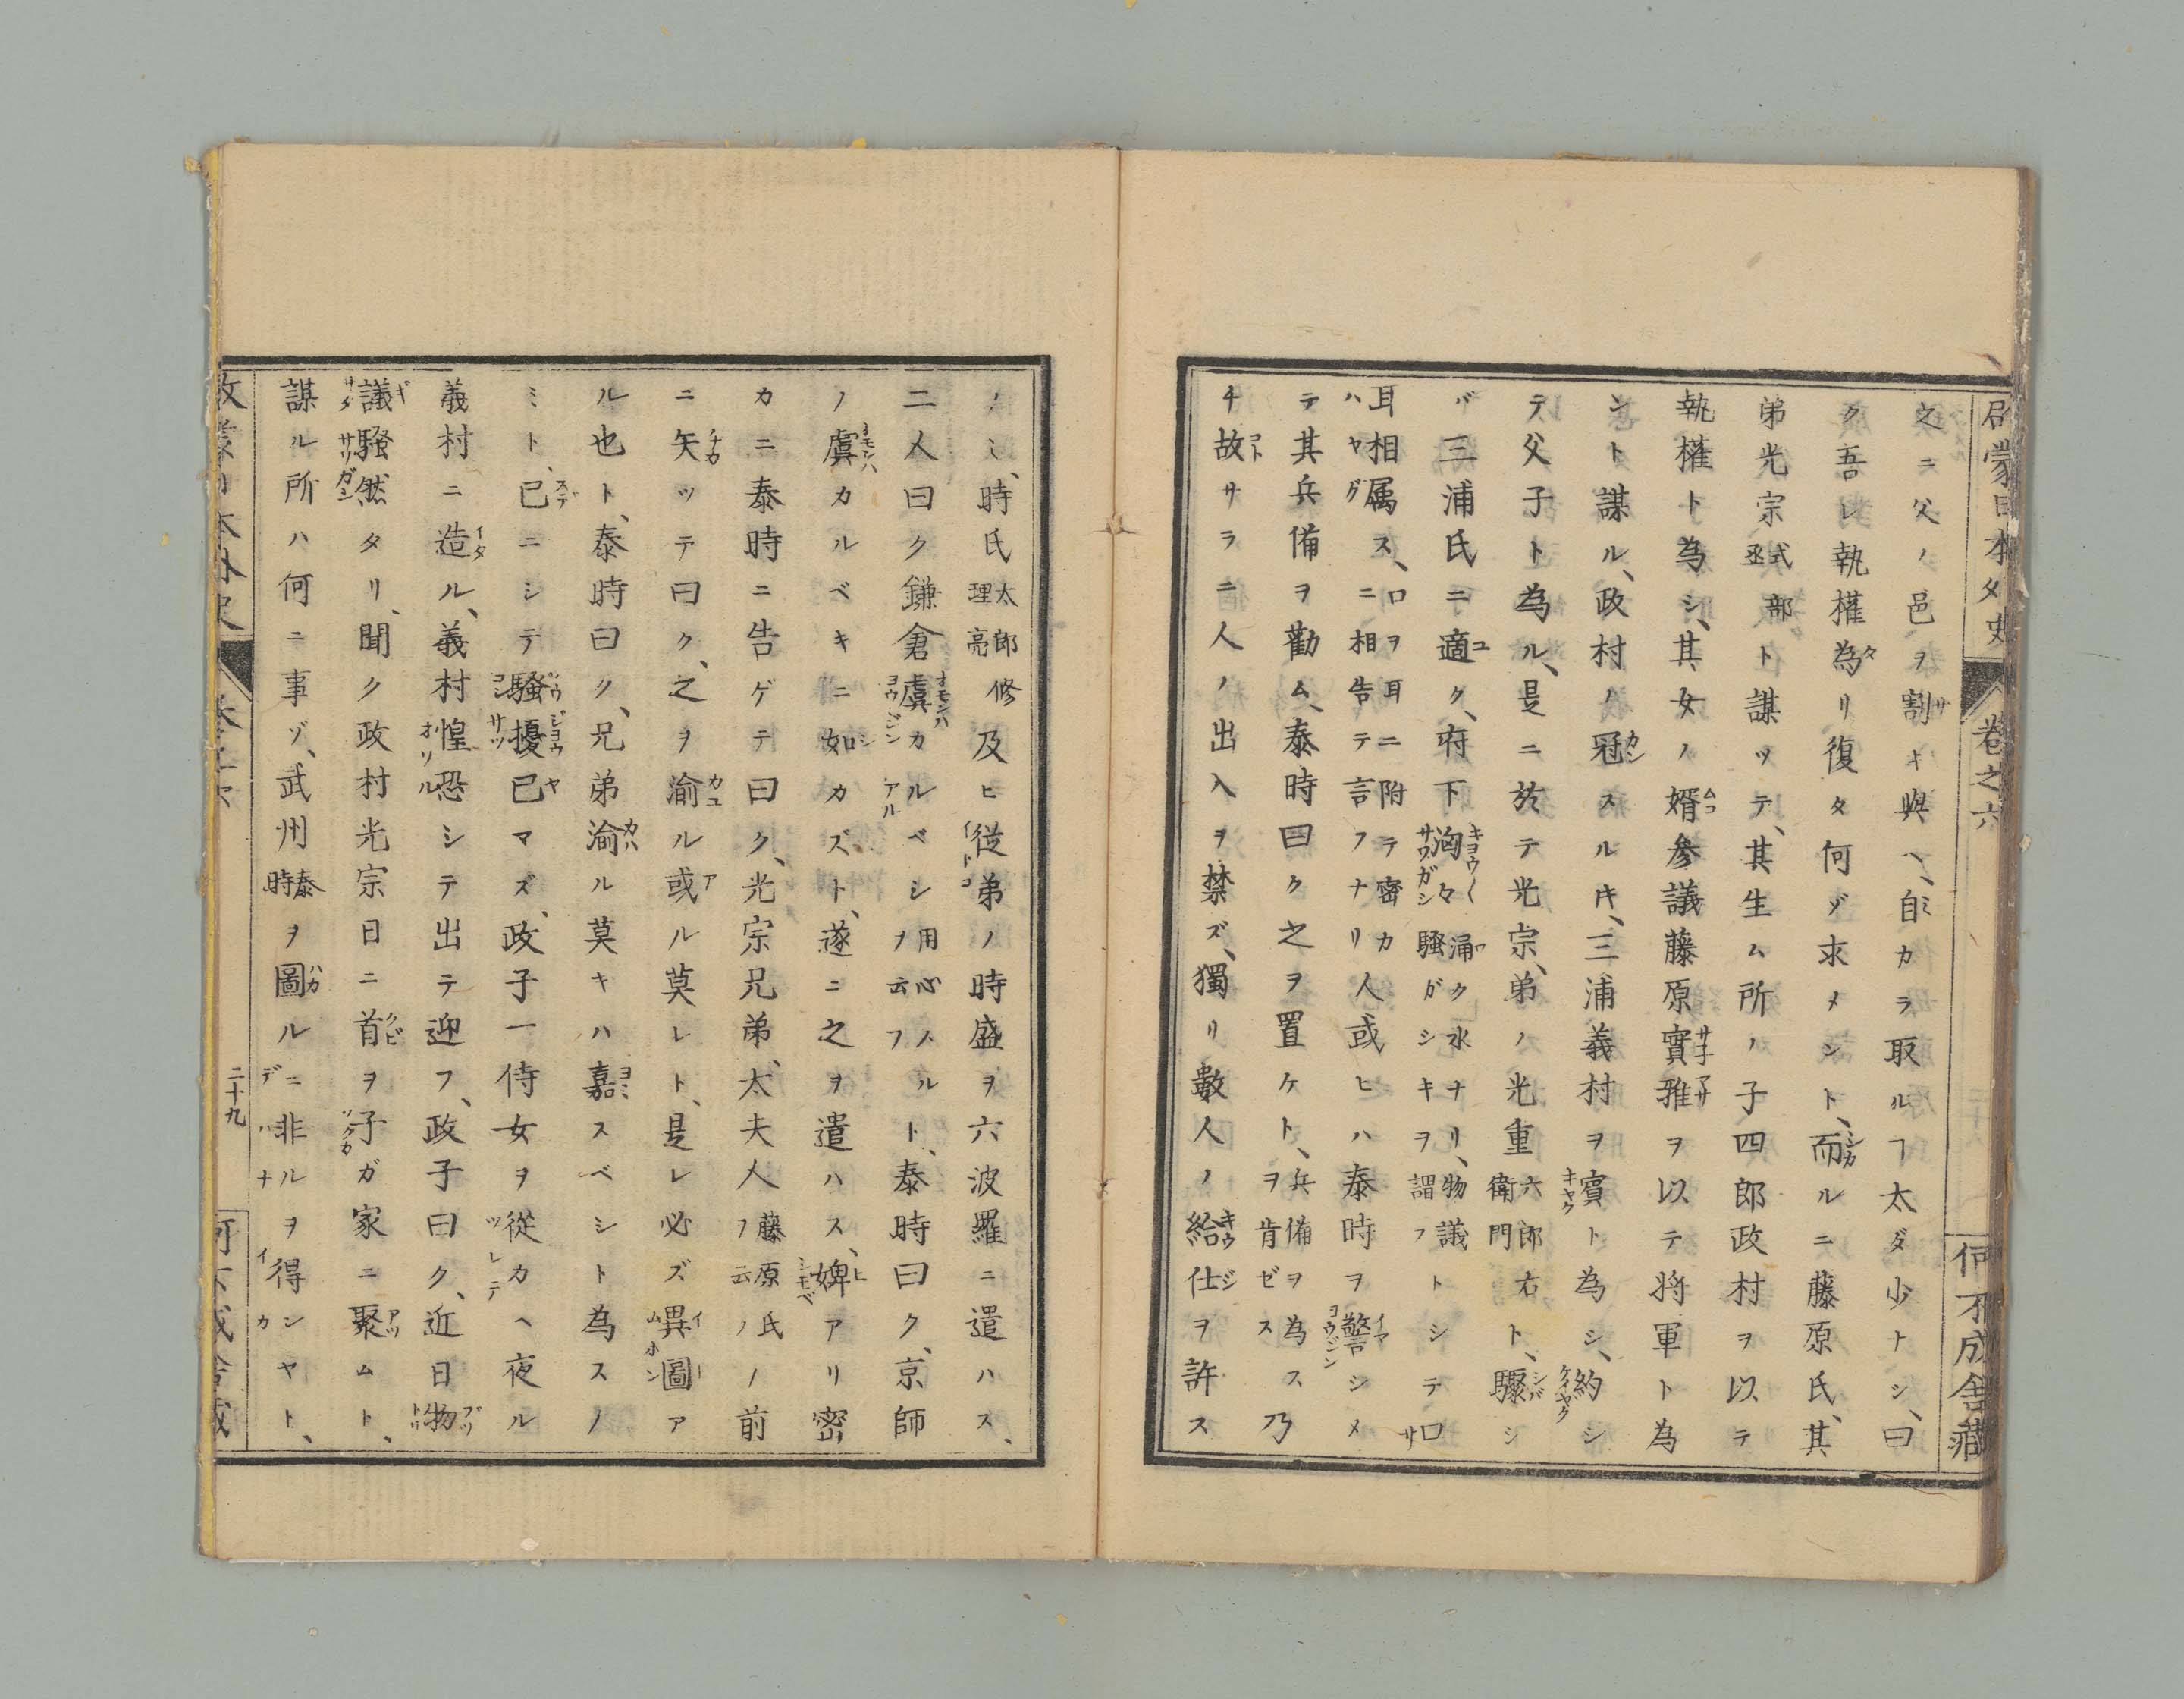 啓蒙日本外史 卷之六 何不成舎藏
之ニ父ノ邑ヲ割キ與ヘ、自カラ取ルヿ太ダ少ナシ、曰
ク吾レ執權為リ復タ何ゾ求メント、而ルニ藤原氏、其
弟光宗式部丞ト謀ッテ、其生ム所ノ子四郎政村ヲ以テ
執權ト為シ、其女ノ婿參議藤原實雅ヲ以テ将軍ト為
ント謀ル、政村ノ冠スルキ、三浦義村ヲ賓ト為シ、約シ
テ父子ト為ル、是ニ於テ光宗、弟ノ光重六郎右衛門ト、驟シ
バ三浦氏ニ適ク、府下洶々涌ク水ナリ、物議トシテ口騒ガシキヲ謂フ
耳相属ス、口ヲ耳ニ附テ密カニ相告テ言フナリ人或ヒハ泰時ヲ警シメ
テ其兵備ヲ勸ム、泰時曰ク之ヲ置ケト、兵備ヲ為スヲ肯ゼス乃
チ故サラニ人ノ出入ヲ禁ズ、獨リ數人ノ給仕ヲ許ス
ノミ、時氏太郎修理亮及ヒ従弟ノ時盛ヲ六波羅ニ遣ハス、
二人曰ク鎌倉虞カルベシ用心スルヲ云フト、泰時曰ク、京師
ノ虞カルベキニ如カズト、遂ニ之ヲ遣ハス、婢アリ密
カニ泰時ニ告ゲテ曰ク、光宗兄弟、太夫人藤原氏ヲ云フノ前
ニ矢ッテ曰ク、之ヲ渝ル或ル莫レト、是レ必ズ異圖ア
ル也ト、泰時曰ク、兄弟渝ル莫キハ嘉スベシト為スノ
ミト、已ニシテ騒擾已マズ、政子一侍女ヲ従カヘ夜ル
義村ニ造ル、義村惶恐シテ出テ迎フ、政子曰ク、近日物
議騒然タリ、聞ク政村光宗日ニ首ヲ子ガ家ニ聚ムト、
謀ル所ハ何ニ事ゾ、武州泰時ヲ圖ルニ非ルヲ得ンヤト、
二十九